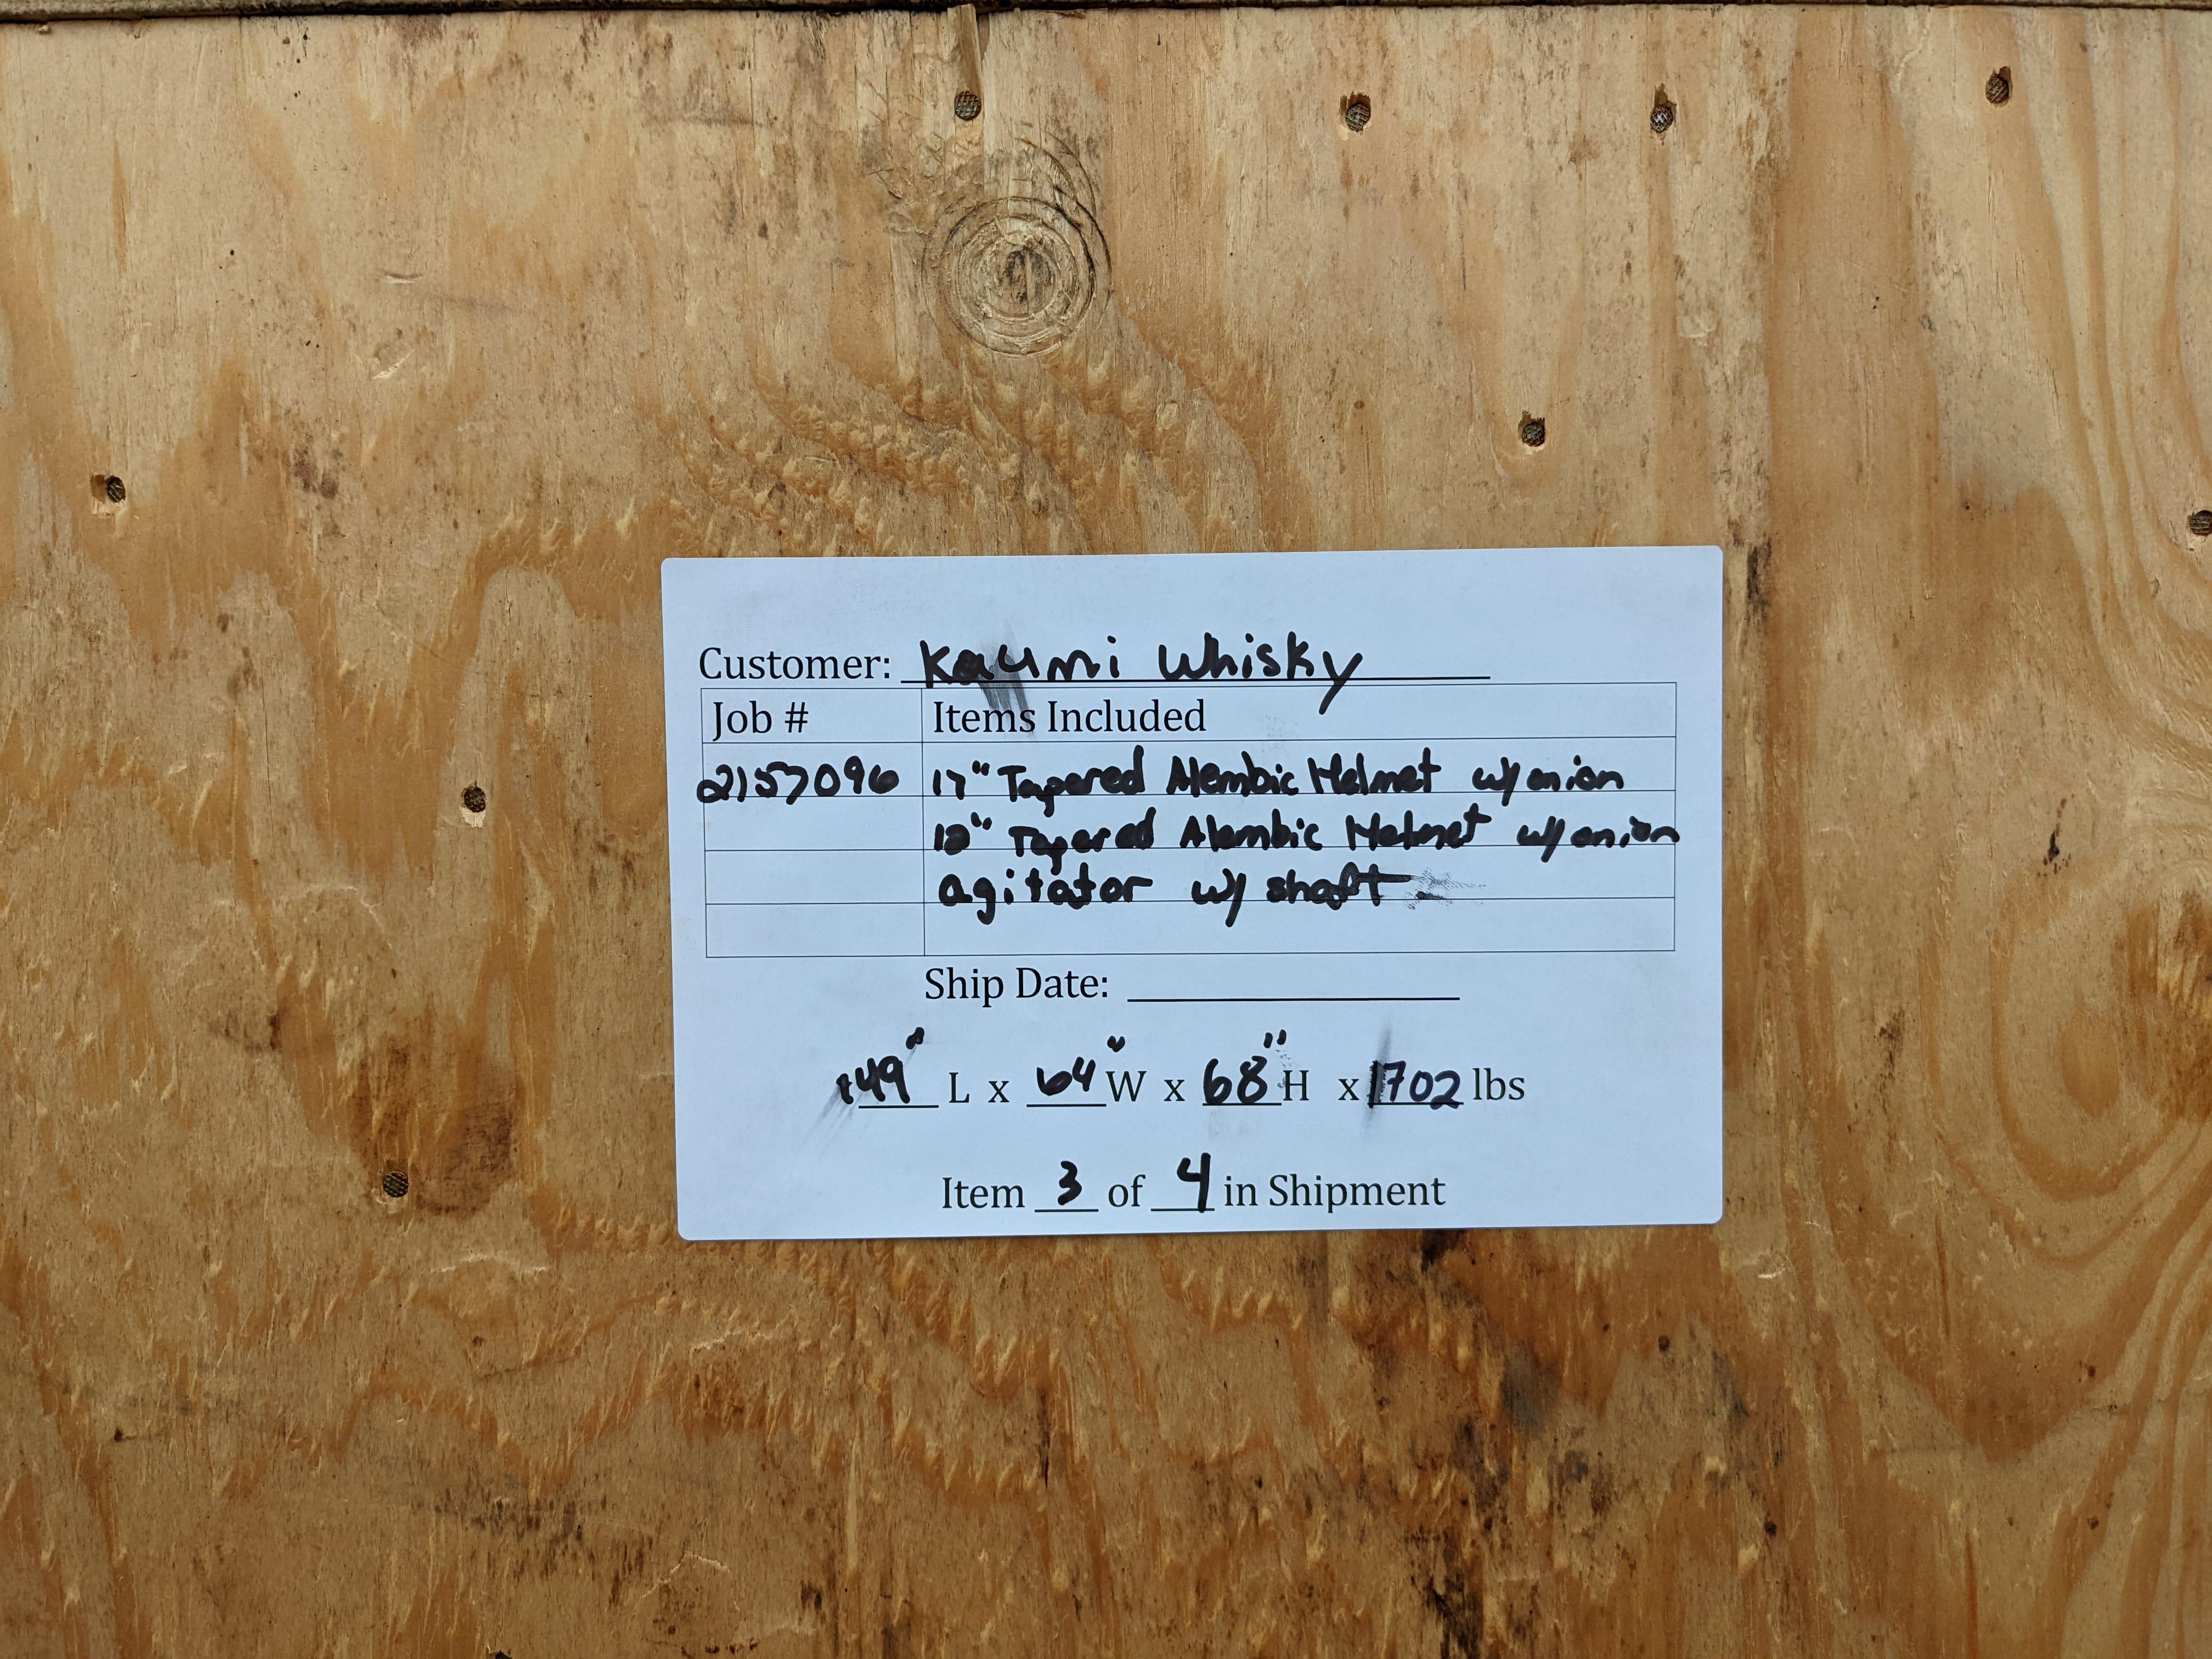 Customer: Kaumi Whisky
Job # Items Included
2157096 17" Tapered Alembic Helmet w/ onion
18" Tapered Alembic Helmet w/ onion
agitator w/ shaft
Ship Date:
149" L x 64" W x 68" H x 1702 lbs
Item 3 of 4 in Shipment